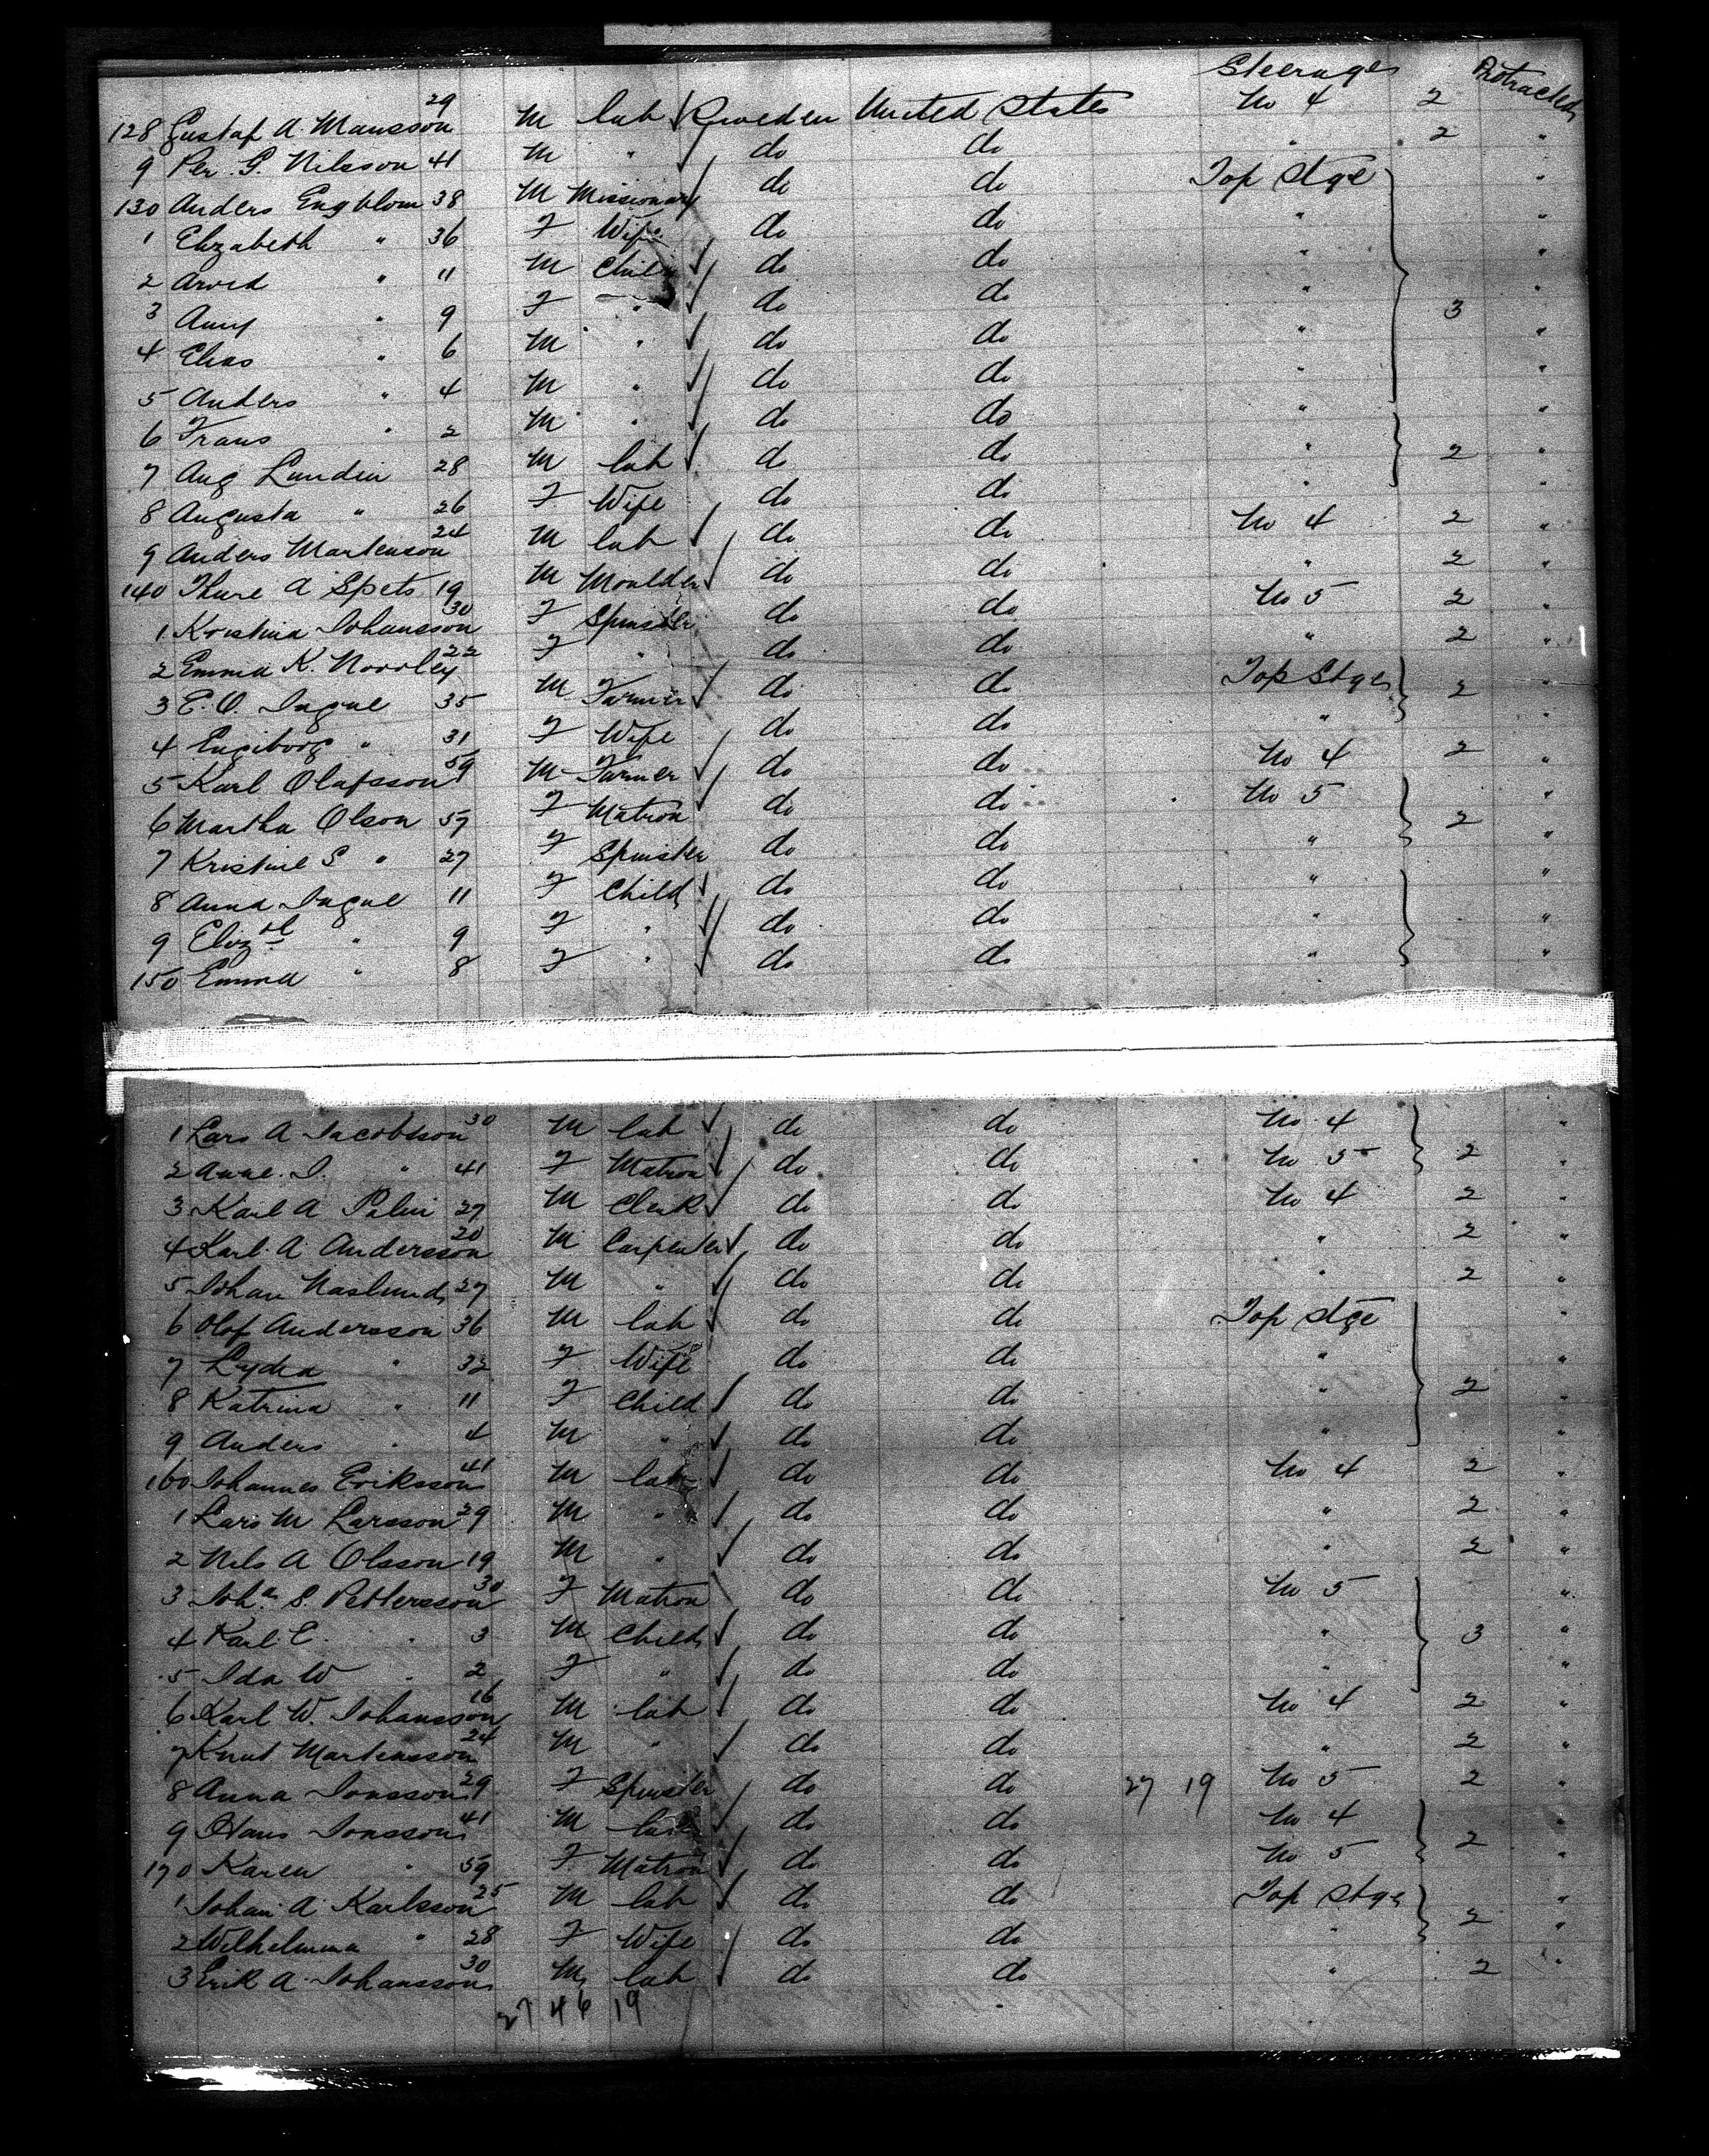 Steerage Protracted
128 Gustaf A. Mansson 29 M lab Sweden United States No 4 2
9 Per. G. Nilsson 41 M " do do " 2 "
130 Anders Engblom 38 M Missionary do do Top Stge "
1 Elizabeth " 36 F Wife do do " "
2 Arvid " 11 M Child do do " "
3 Amy " 9 F " do do " 3 "
4 Elias " 6 M " do do " "
5 Anders " 4 M " do do " "
6 Frans " 2 M " do do " "
7 Aug Lundin 28 M lab do do " 2 "
8 Augusta " 26 F Wife do do " "
9 Anders Martenson 24 M lab do do No 4 2 "
140 Thure A Spets 19 M Moulder do do " 2 "
1 Kristina Johansson 30 F Spinster do do No 5 2 "
2 Emma K. 22 F " do do " 2 "
3 E. O. Ingul 35 M Farmer do do Top Stge 2 "
4 Engiborg " 31 F Wife do do " "
5 Karl Olafsson 59 M Farmer do do No 4 2 "
6 Martha Olson 57 F Matron do do No 5 2 "
7 Kristine S " 27 F Spinster do do " "
8 Anna Ingul 11 F Child do do " "
9 Elizth " 9 F " do do " "
150 Emma " 8 F " do do " "
1 Lars A Jacobsson 30 M lab do do No 4 "
2 Anne. I. " 41 F Matron do do No 5 2 "
3 Karl A Palin 27 M Clerk do do No 4 2 "
4 Karl. A Andersson 20 M Carpenter do do " 2 "
5 Johan Naslund 27 M " do do " 2 "
6 Olof Andersson 36 M lab do do Top Stge "
7 Lydia " 32 F Wife do do " "
8 Katrina " 11 F Child do do " 2 "
9 Anders " 4 M " do do " "
160 Johannes Eriksson 41 M lab do do No 4 2 "
1 Lars M Larsson 29 M " do do " 2 "
2 Nils A Olsson 19 M " do do " 2 "
3 Joha S. Pettersson 30 F Matron do do No 5 "
4 Karl. E. " 3 M Child do do " 3 "
5 Ida W " 2 F " do do " "
6 Karl W. Johansson 16 M lab do do No 4 2 "
7 Knut Martensson 24 M " do do " 2 "
8 Anna Jonsson 29 F Spinster do do 27 19 No 5 2 "
9 Hans Jonsson 41 M lab do do No 4 2 "
170 Karen " 59 F Matron do do No 5 "
1 Johan A Karlsson 25 M lab do do Top Stge 2 "
2 Wilhelmina " 28 F Wife do do " "
3 Erik A Johansson 30 M lab do do " 2 "
27 46 19